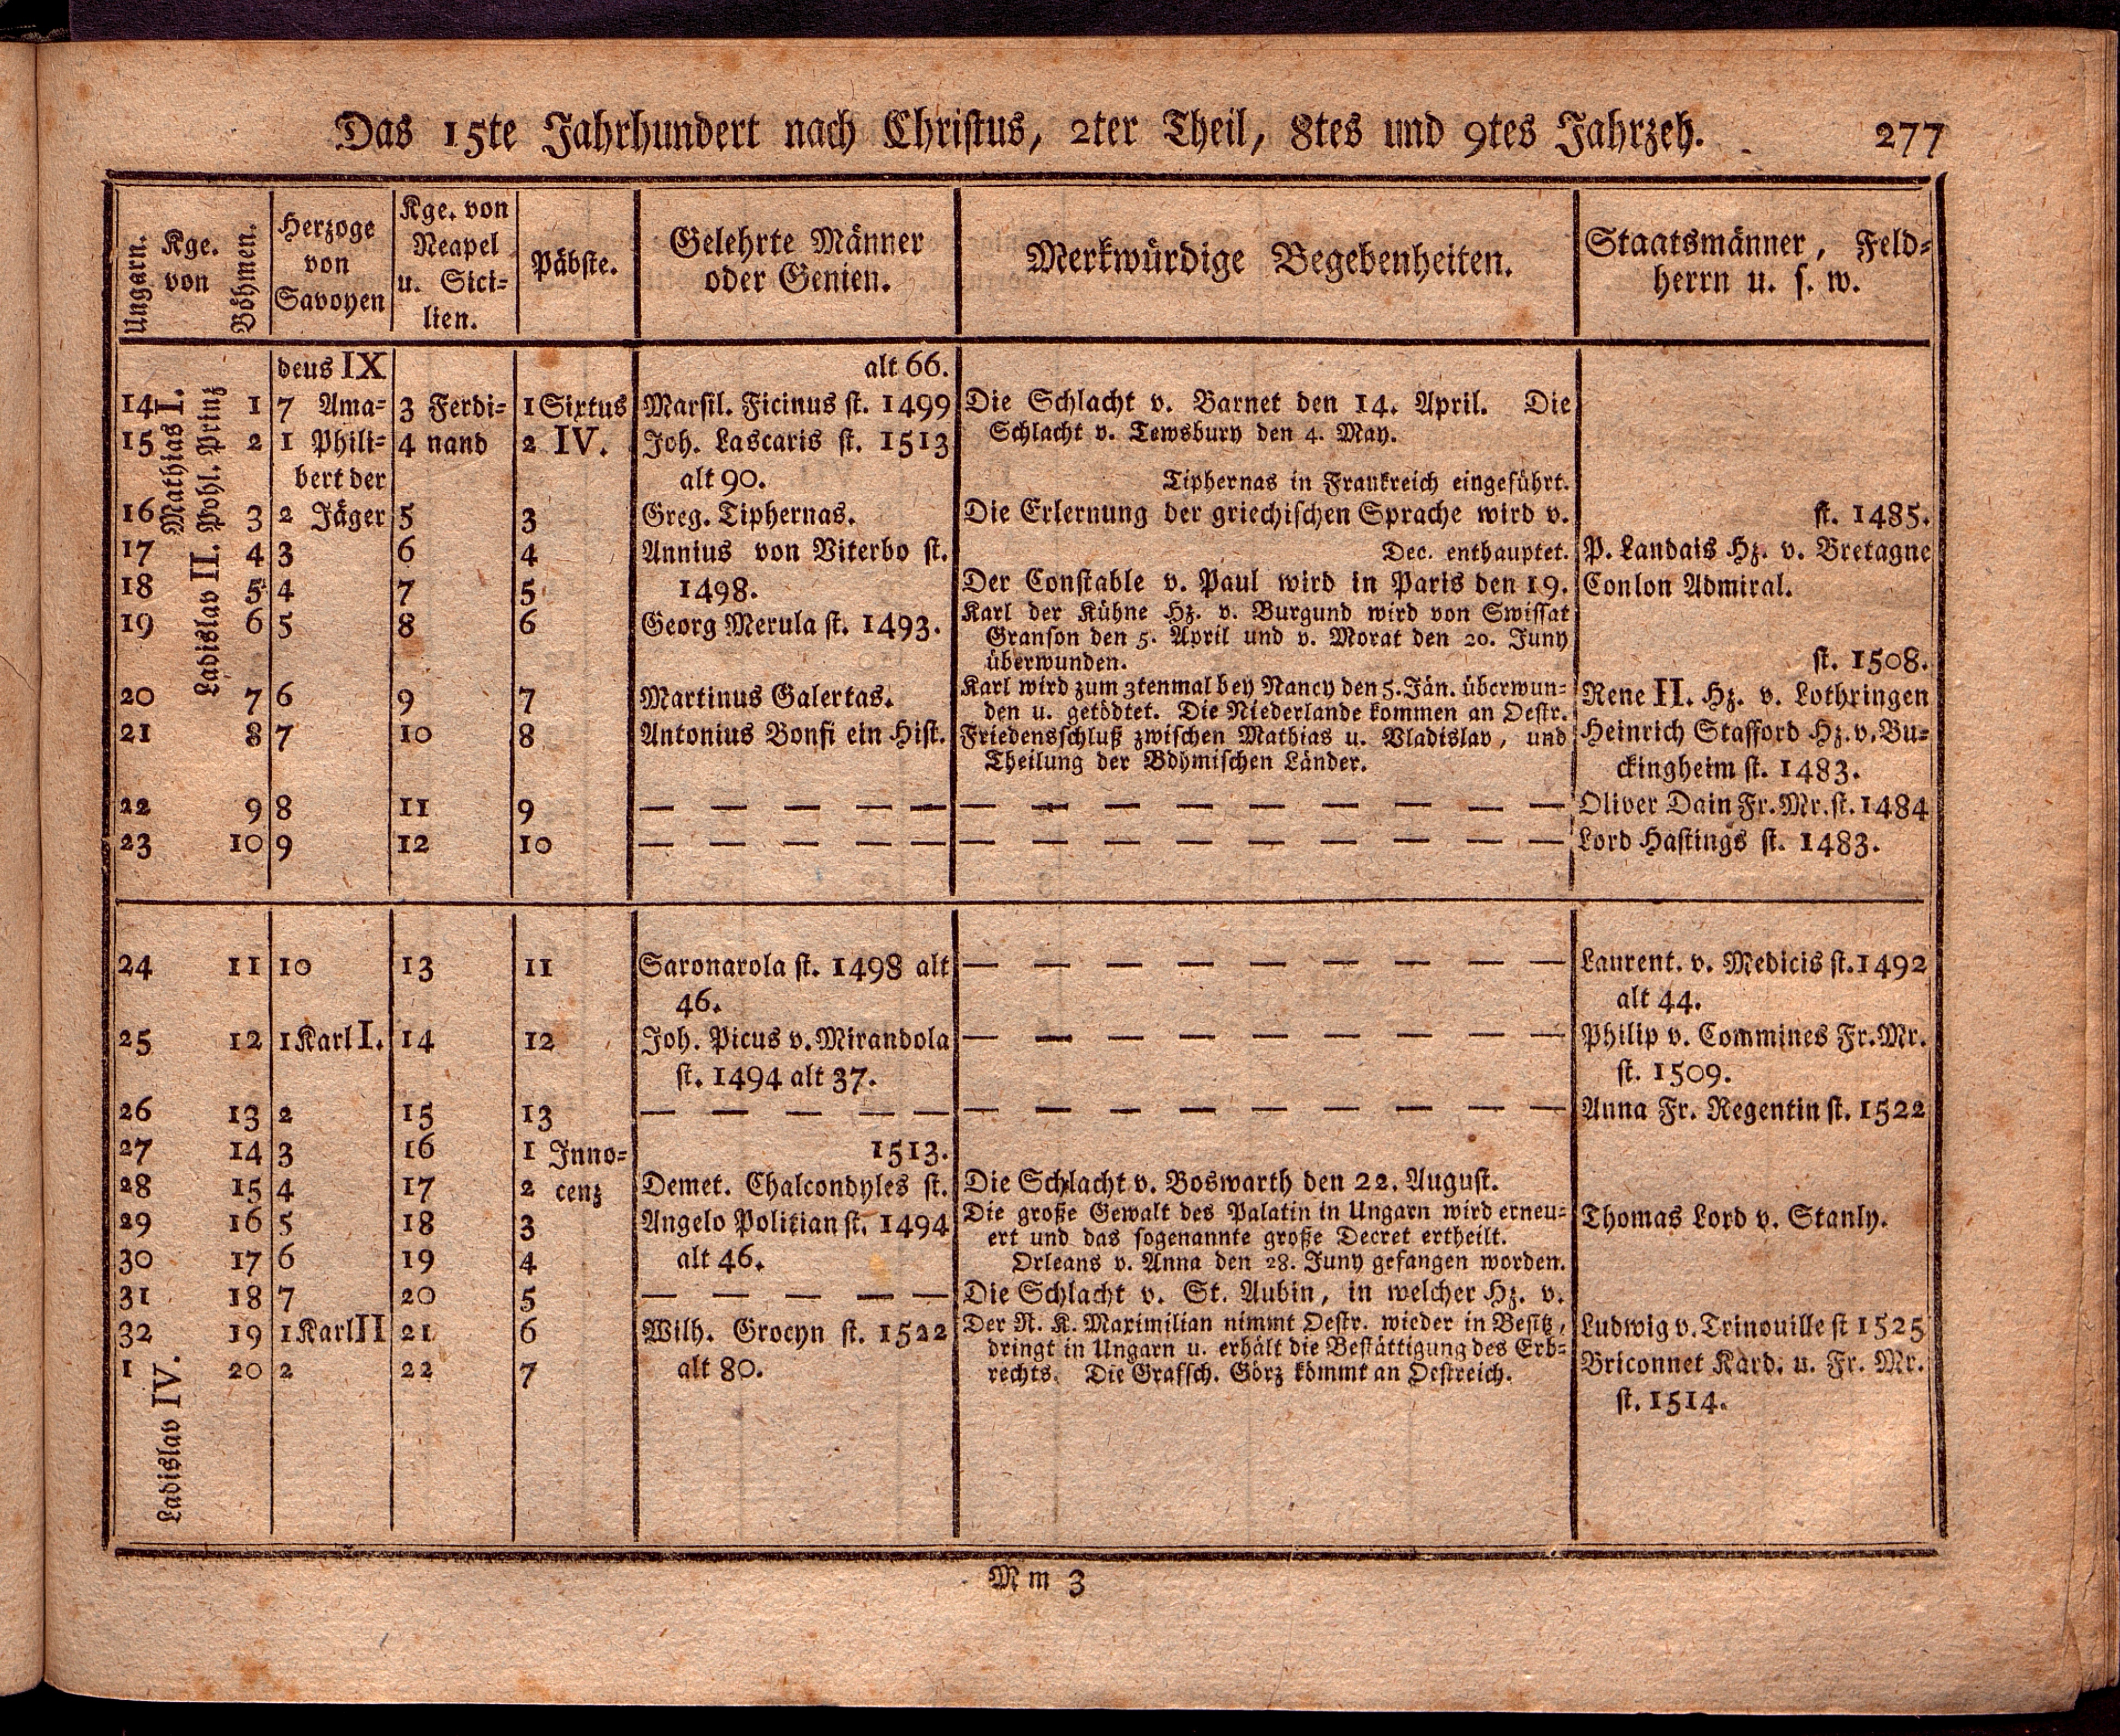 Das 15te Jahrhundert nach Christus, 2ter Theil, 8tes und 9tes Jahrzeh.
277
Ungarn.
Kge.
von
Böhmen.
Herzoge
von
Savoyen
Kge. von
Neapel
u. Sici=
lien.
Päbste.
Gelehrte Männer
oder Genien.
Merkwürdige Begebenheiten.
Staatsmänner, Feld=
herrn u. s. w.
Mathias I.
Ladislav II. Pohl. Prinz
deus IX alt 66.
14 1 7 Ama= 3 Ferdi= 1 Sixtus Marsil. Ficinus st. 1499 Die Schlacht v. Barnet den 14. April. Die
15 2 1 Phili= 4 nand 2 IV. Joh. Lascaris st. 1513 Schlacht v. Tewsbury den 4. May.
bert der alt 90. Tiphernas in Frankreich eingeführt.
16 3 2 Jäger 5 3 Greg. Tiphernas. Die Erlernung der griechischen Sprache wird v. st. 1485.
17 4 3 6 4 Annius von Viterbo st. Dec. enthauptet. P. Landais Hz. v. Bretagne
18 5 4 7 5 1498. Der Constable v. Paul wird in Paris den 19. Conlon Admiral.
19 6 5 8 6 Georg Merula st. 1493. Karl der Kühne Hz. v. Burgund wird von Swissat
Granson den 5. April und v. Morat den 20. Juny
überwunden. st. 1508.
20 7 6 9 7 Martinus Galertas. Karl wird zum 3tenmal bey Nancy den 5. Jän. überwun= Rene II. Hz. v. Lothringen
den u. getödtet. Die Niederlande kommen an Oestr.
21 8 7 10 8 Antonius Bonfi ein Hist. Friedensschluß zwischen Mathias u. Vladislav, und Heinrich Stafford Hz. v. Bu=
Theilung der Böhmischen Länder. ckingheim st. 1483.
22 9 8 11 9 — — — — — — — — — — — — — — Oliver Dain Fr. Mr. st. 1484
23 10 9 12 10 — — — — — — — — — — — — — — Lord Hastings st. 1483.
24 11 10 13 11 Saronarola st. 1498 alt — — — — — — — — — Laurent. v. Medicis st. 1492
46. alt 44.
25 12 1 Karl I. 14 12 Joh. Picus v. Mirandola — — — — — — — — — Philip v. Commines Fr. Mr.
st. 1494 alt 37. st. 1509.
26 13 2 15 13 — — — — — — — — — — — — — — Anna Fr. Regentin st. 1522
27 14 3 16 1 Inno= 1513.
28 15 4 17 2 cenz Demet. Chalcondyles st. Die Schlacht v. Boswarth den 22. August.
29 16 5 18 3 Angelo Politian st. 1494 Die große Gewalt des Palatin in Ungarn wird erneu= Thomas Lord v. Stanly.
ert und das sogenannte große Decret ertheilt.
30 17 6 19 4 alt 46. Orleans v. Anna den 28. Juny gefangen worden.
31 18 7 20 5 — — — — — Die Schlacht v. St. Aubin, in welcher Hz. v.
32 19 1 Karl II 21 6 Wilh. Grocyn st. 1522 Der R. K. Maximilian nimmt Oestr. wieder in Besitz, Ludwig v. Trinouille st 1525
dringt in Ungarn u. erhält die Bestättigung des Erb=
1 20 2 22 7 alt 80. rechts. Die Grafsch. Görz kömmt an Oestreich. Briconnet Kard. u. Fr. Mr.
st. 1514.
Ladislav IV.
M m 3